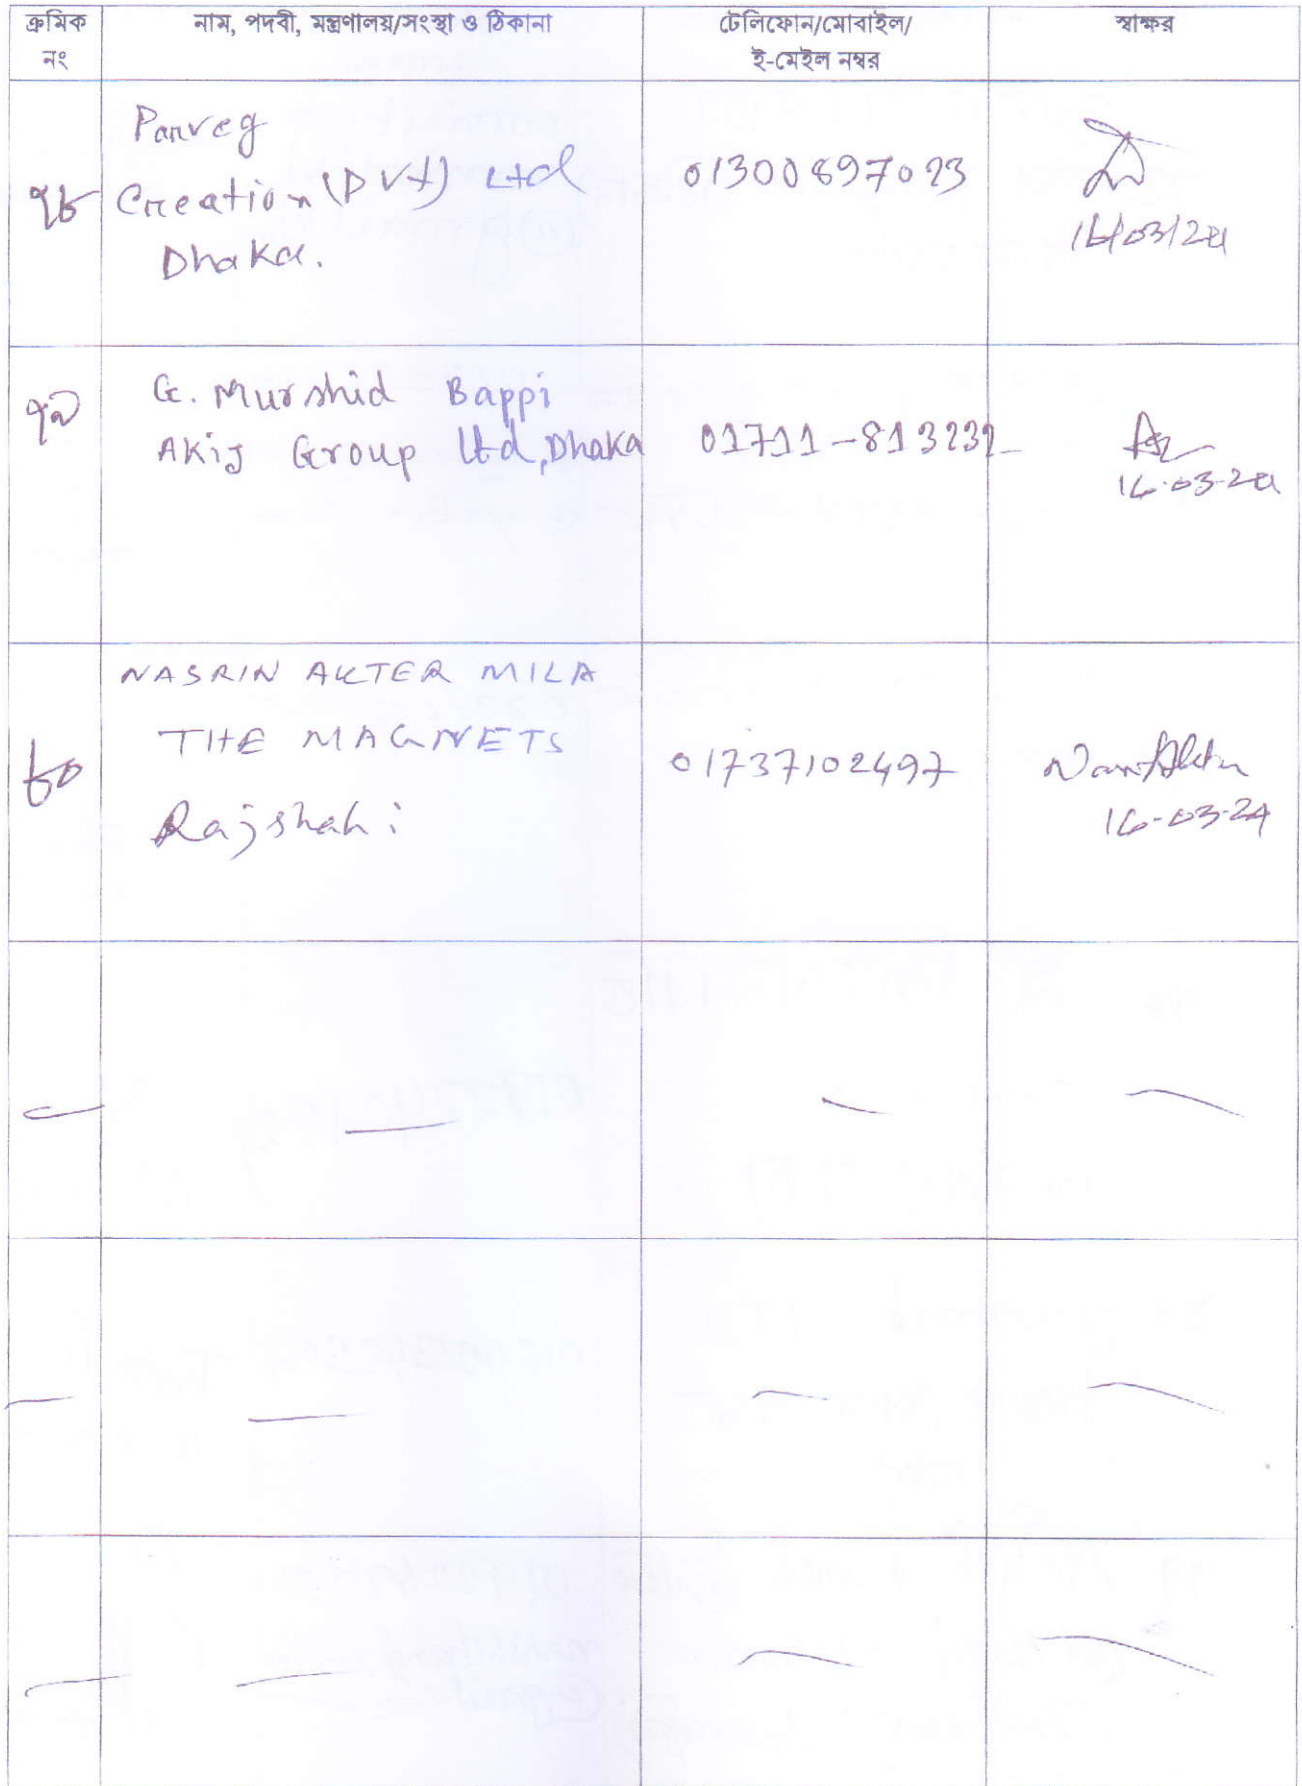 ক্রমিক নং
নাম, পদবী, মন্ত্রণালয়/সংস্থা ও ঠিকানা
টেলিফোন/মোবাইল/
ই-মেইল নম্বর
স্বাক্ষর
৭৮
Parveg
Creation (Pvt) Ltd
Dhaka.
01300897023
16/03/24
৭৯
G. Murshid Bappi
AKij Group Ltd, Dhaka
01711-813232
16-03-24
৮০
NASRIN AKTER MILA
THE MAGNETS
Rajshahi
01737102497
16-03-24